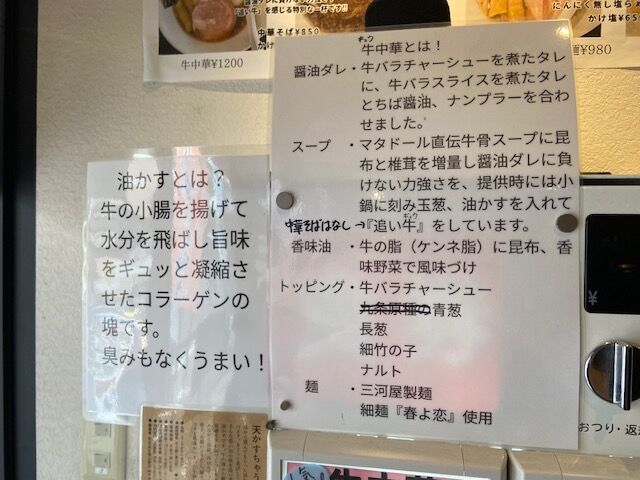 『追い牛』を感じる特別な一杯です!!
牛中華¥1200
中華そば¥850
にんにく無し塩ら
かけ塩¥65
¥980
ギュウ
牛中華とは！
醤油ダレ・牛バラチャーシューを煮たタレ
に、牛バラスライスを煮たタレ
とちば醤油、ナンプラーを合わ
せました。
スープ ・マタドール直伝牛骨スープに昆
布と椎茸を増量し醤油ダレに負
けない力強さを、提供時には小
鍋に刻み玉葱、油かすを入れて
中華そばはなし→『追い牛』をしています。
ギュウ
香味油 ・牛の脂（ケンネ脂）に昆布、香
味野菜で風味づけ
トッピング・牛バラチャーシュー
九条原種の青葱
長葱
細竹の子
ナルト
麺 ・三河屋製麺
細麺『春よ恋』使用
油かすとは？
牛の小腸を揚げて
水分を飛ばし旨味
をギュッと凝縮さ
せたコラーゲンの
塊です。
臭みもなくうまい！
天かすちゃう
¥
おつり・返